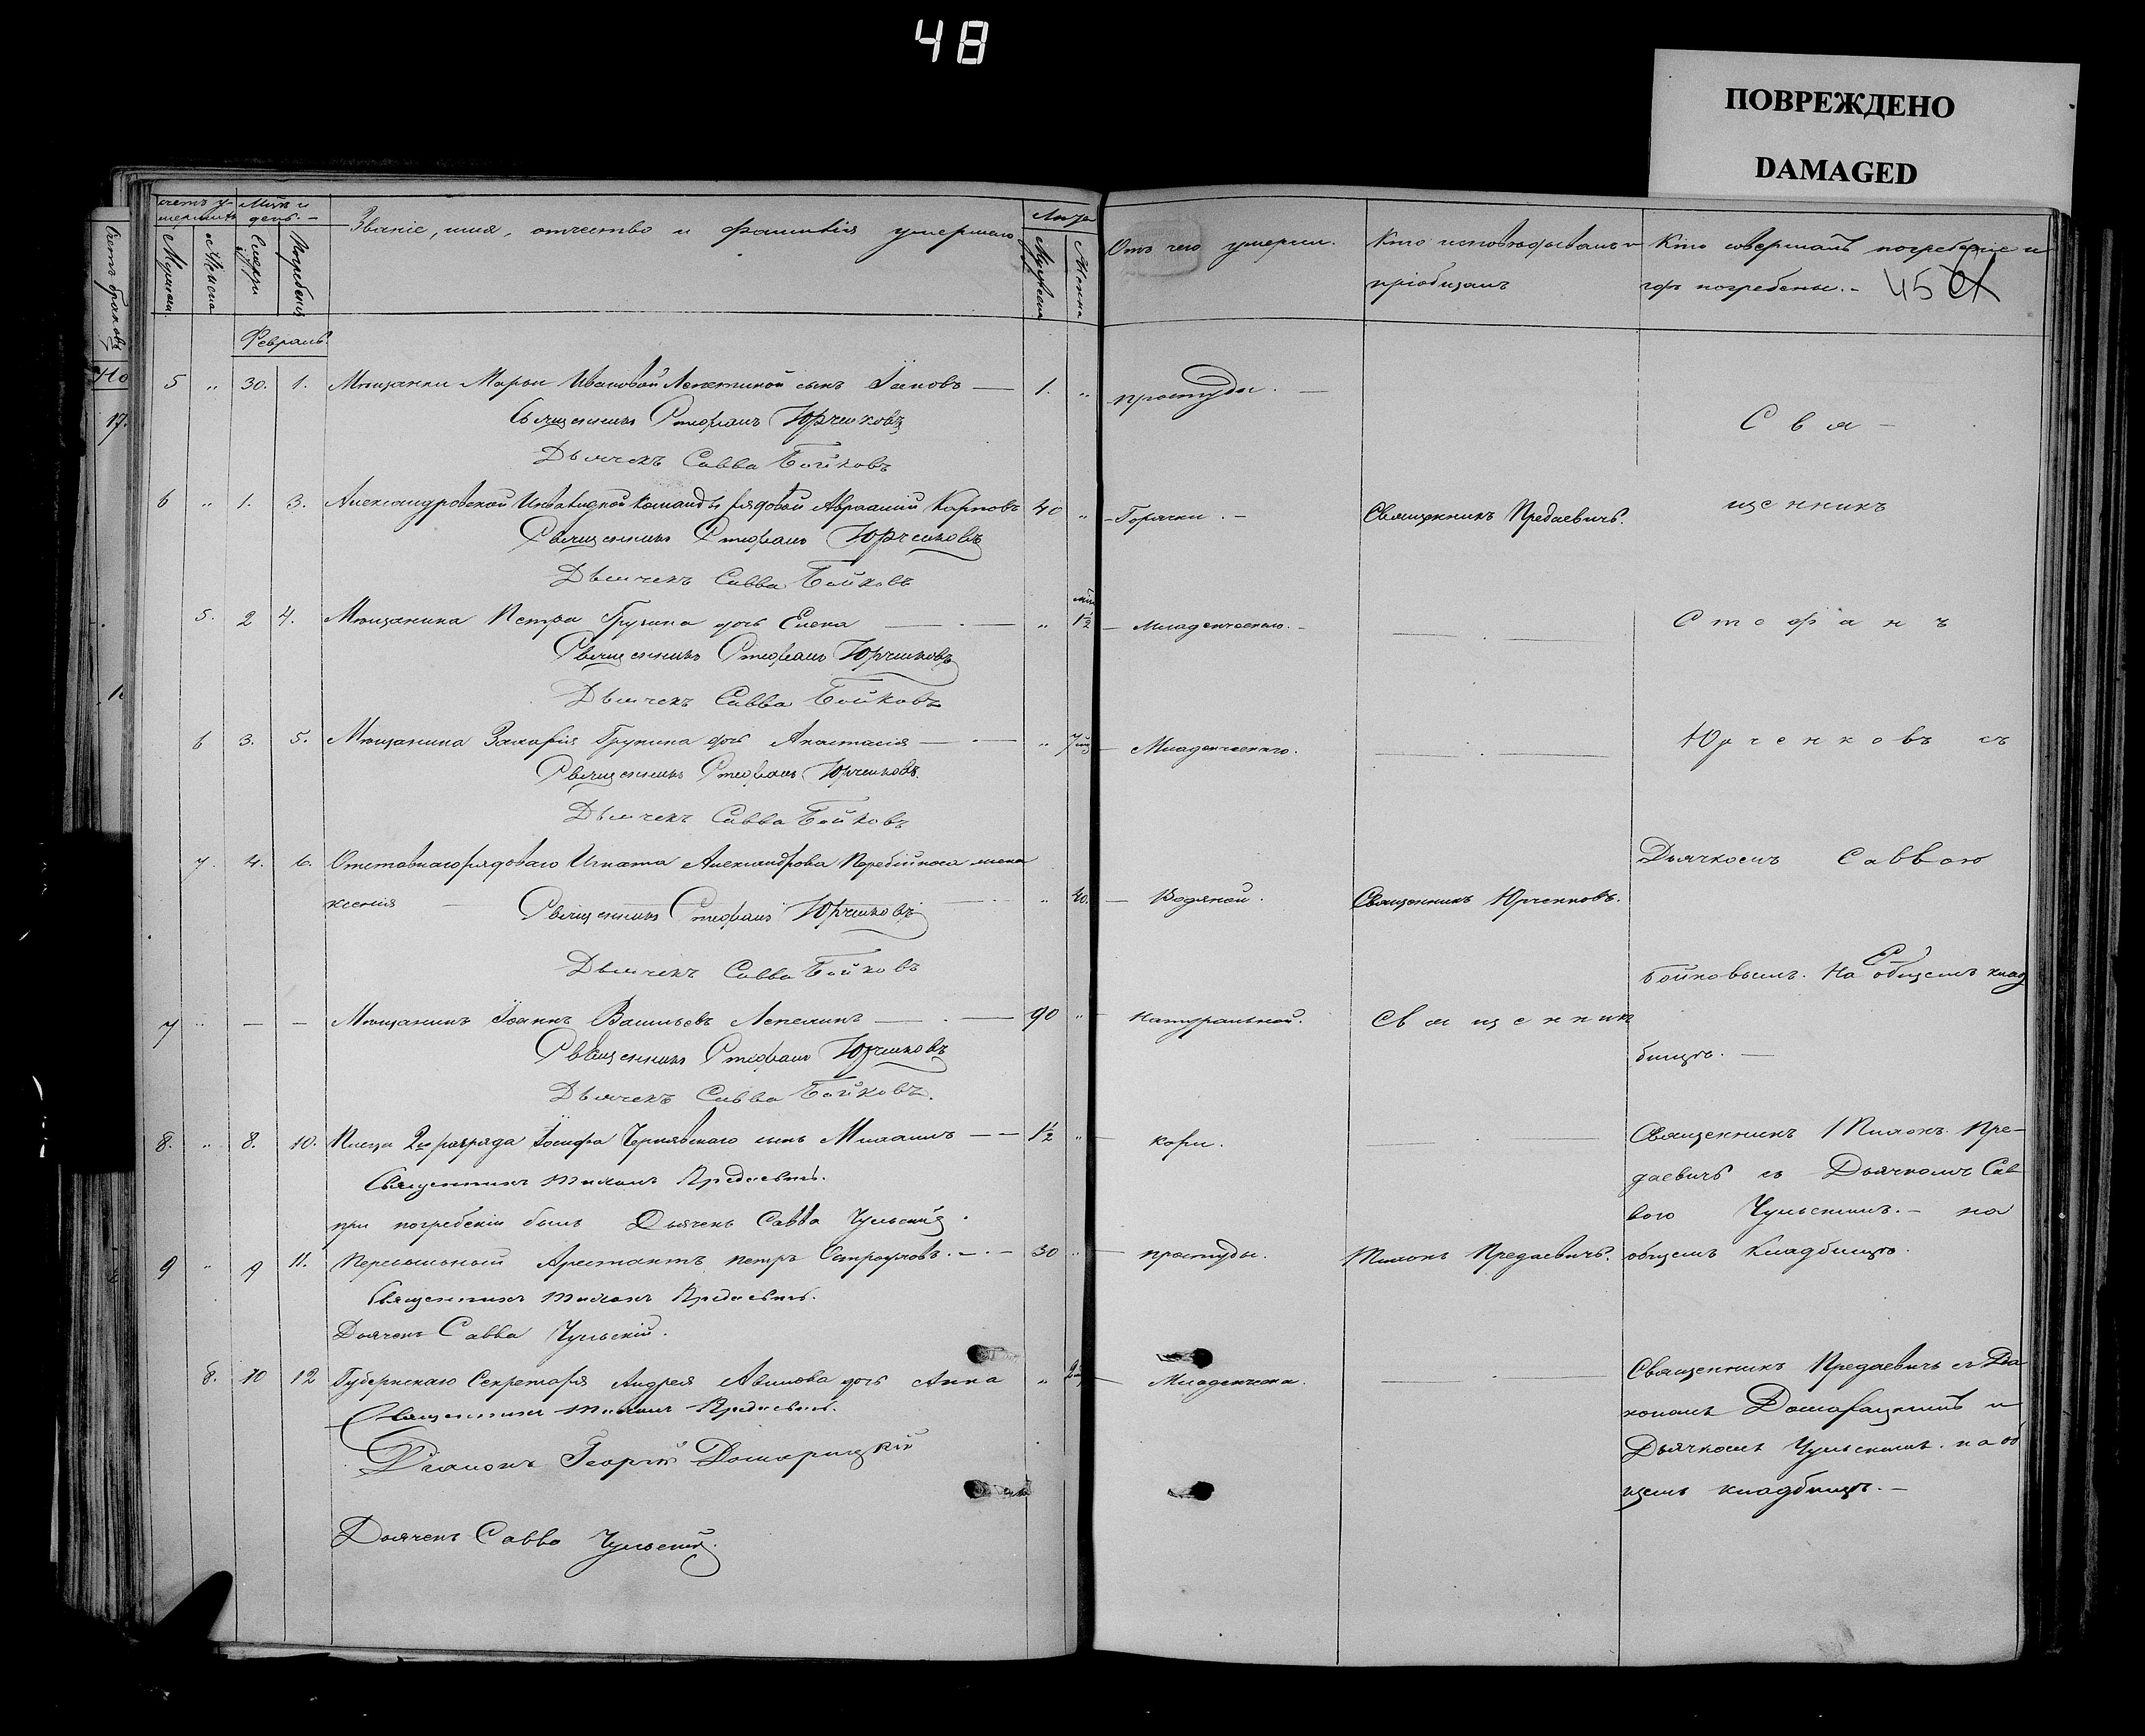 48
ПОВРЕЖДЕНО
DAMAGED
Званіе, имя, отчество и фамилія умершаго
Лѣта
Мужеска
Женска
Умерши
Погребенія
Отъ чего умерли.
Кто исповѣдывалъ и
пріобщалъ
Кто совершалъ погребеніе и
гдѣ погребены. –
45
Февраль.
5 „ 30. 1. Мѣщанки Марьи Ивановой сынъ Іаковъ — 1. „ простуды. —
Священникъ Стефанъ Юрченковъ
Дьячекъ Савва Бойковъ
С в я –
6 „ 1. 3. Александровской Инвалидной Команды рядовой Авраамій Карповъ 40 „ Горячки. – Священникъ Предаевичъ.
щенникъ
Священникъ Стефанъ Юрченковъ
Дьячекъ Савва Бойковъ
5. 2 4. Мѣщанина Петра дочь Елена — „ 1½ Младенческаго. –
С т е ф а н ъ
Священникъ Стефанъ Юрченковъ
Дьячекъ Савва Бойковъ
6 3. 5. Мѣщанина Захарія дочь Анастасія — „ 7 Младенческаго.
Ю р ч е н к о в ъ съ
Священникъ Стефанъ Юрченковъ
Дьячекъ Савва Бойковъ
7. 4. 6. Отставнаго рядоваго Игната Александрова Перебійноса жена
Дьячкомъ Саввою
Ксенія „ 40. Водяной. Священникъ Юрченковъ.
Священникъ Стефанъ Юрченковъ
Дьячекъ Савва Бойковъ
Бойковымъ. На общемъ клад
7 „ — — Мѣщанинъ Іоаннъ Васильевъ — 90 „ Натуральной. С в я щ е н н и к ъ
Священникъ Стефанъ Юрченковъ
бищѣ. —
Дьячекъ Савва Бойковъ.
8. „ 8. 10. Писца 2го разряда Іосифа Чернявскаго сынъ Михаилъ — 1½ „ кори.
Священникъ Тихонъ Пре-
Священникъ Тихонъ Предаевичъ.
даевичъ съ Дьячкомъ Сав
при погребеніи былъ Дьячекъ Савва Чульскій.
вою Чульскимъ. – на
9 „ 9 11. Пересыльный Арестантъ Петръ — 30 „ простуды. Тихонъ Предаевичъ. общемъ Кладбищѣ.
Священникъ Тихонъ Предаевичъ.
Дьячекъ Савва Чульскій.
8. 10 12 Губернскаго Секретаря Андрея дочь Анна „ Младенческа.
Священникъ Предаевичъ съ Діа
Священникъ Тихонъ Предаевичъ.
кономъ Домарацкимъ и
Діаконъ Георгій Домарацкій
Дьячкомъ Чульскимъ. на об
щемъ кладбищѣ. –
Дьячекъ Савва Чульскій.